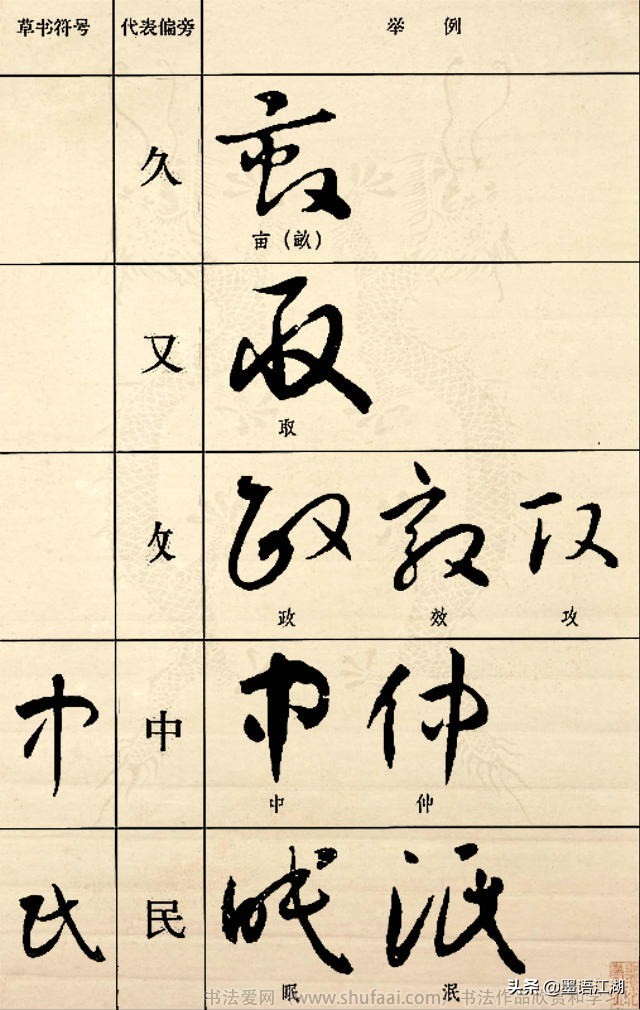 草书符号 代表偏旁 举 例
久
亩（畝）
又
取
攵
政 效 攻
中
中 仲
民
眠 泯
书法爱网 www.shufaai.com 书法作品欣赏和学习
头条 @墨语江湖